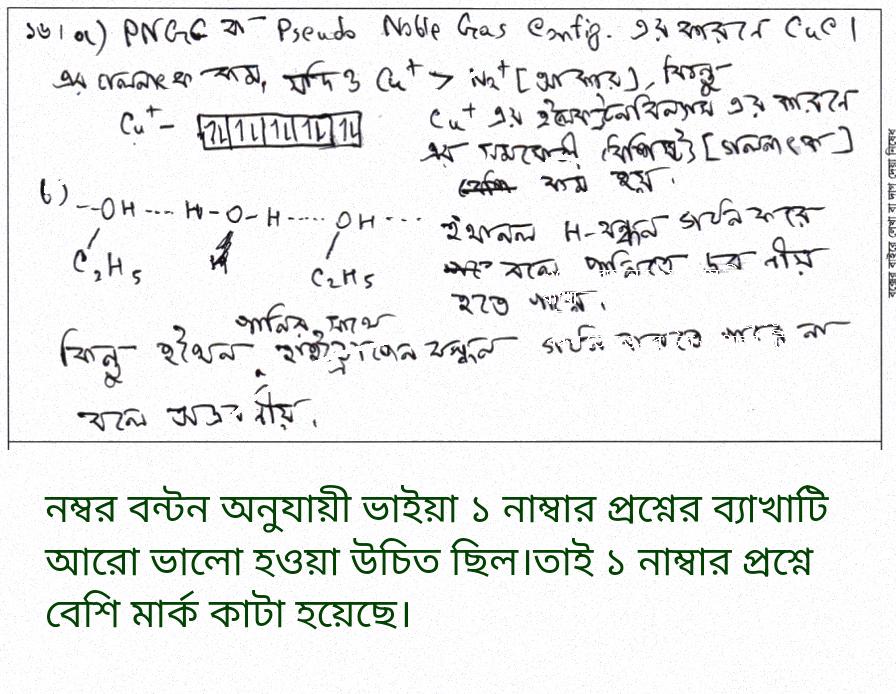 ১৬। a) PNGC বা Pseudo Noble Gas Config. এর কারনে CuCl
এর গলনাংক কম, যদিও Cu⁺ > Na⁺ [আকার], কিন্তু
Cu⁺ - 1L 1L 1L 1L 1L Cu⁺ এর ইলেকট্রনবিন্যাস এর কারনে
এর সমযোজী বৈশিষ্ট্য [গলনাংক]
কম হয়।
b) --OH---- H-O-H ---- OH ---
C₂H₅ H C₂H₅
ইথানল H-বন্ধন গঠন করে
বলে পানিতে দ্রবনীয়
হতে পারে।
পানির সাথে
কিন্তু ইথেন হাইড্রোজেন বন্ধন গঠন করতে পারে না
বলে অদ্রবনীয়।
বক্সের বাইরে লেখা বা দাগ দেয়া নিষেধ
নম্বর বন্টন অনুযায়ী ভাইয়া ১ নাম্বার প্রশ্নের ব্যাখাটি
আরো ভালো হওয়া উচিত ছিল।তাই ১ নাম্বার প্রশ্নে
বেশি মার্ক কাটা হয়েছে।